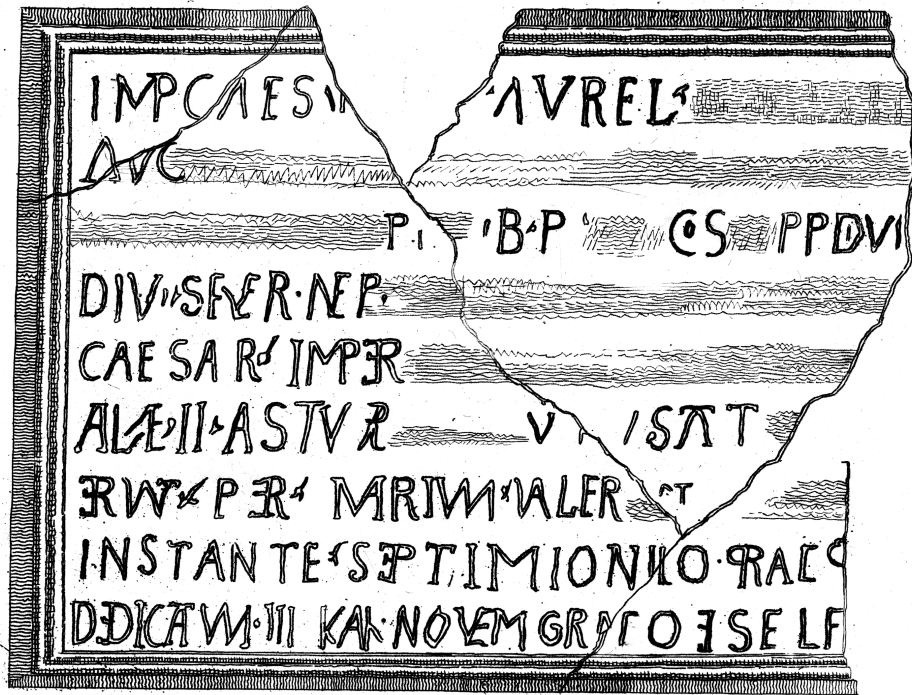 IMP CAES AVREL
AVG
P BP COS PP DVI
DIVI SEVER NEP
CAESAR IMPER
ALAE II ASTVR V SAT
ERVNT PER MARIVM VALER
INSTANTE SEPTIMIO NILO PRAEF
DEDICATVM III KAL NOVEM GRATO ET SELE